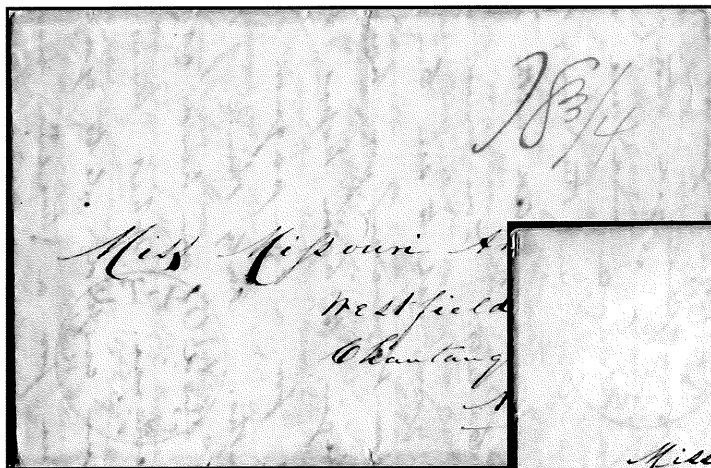 18 3/4
Miss Missouri An
Westfield
Chautauq
N
Miss